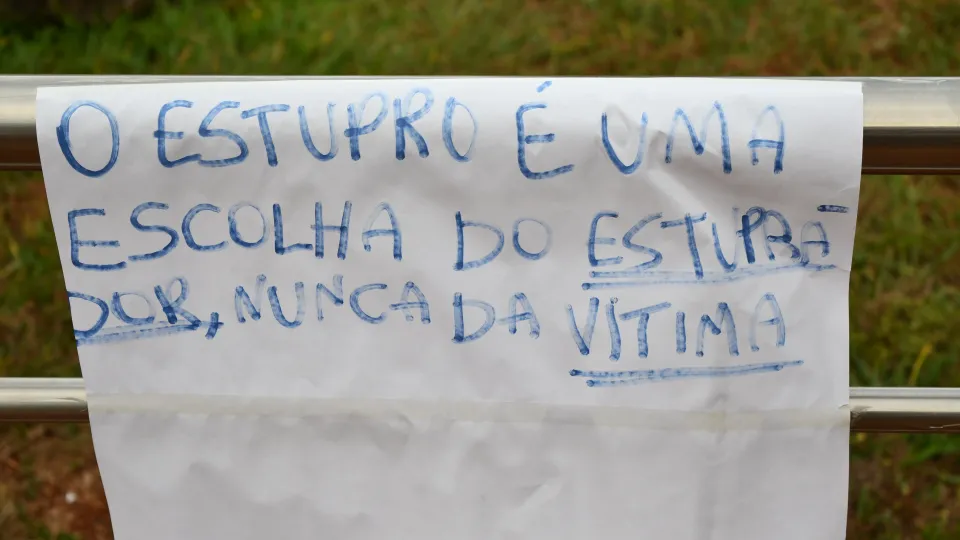 O ESTUPRO É UMA
ESCOLHA DO ESTUPRA-
DOR, NUNCA DA VÍTIMA